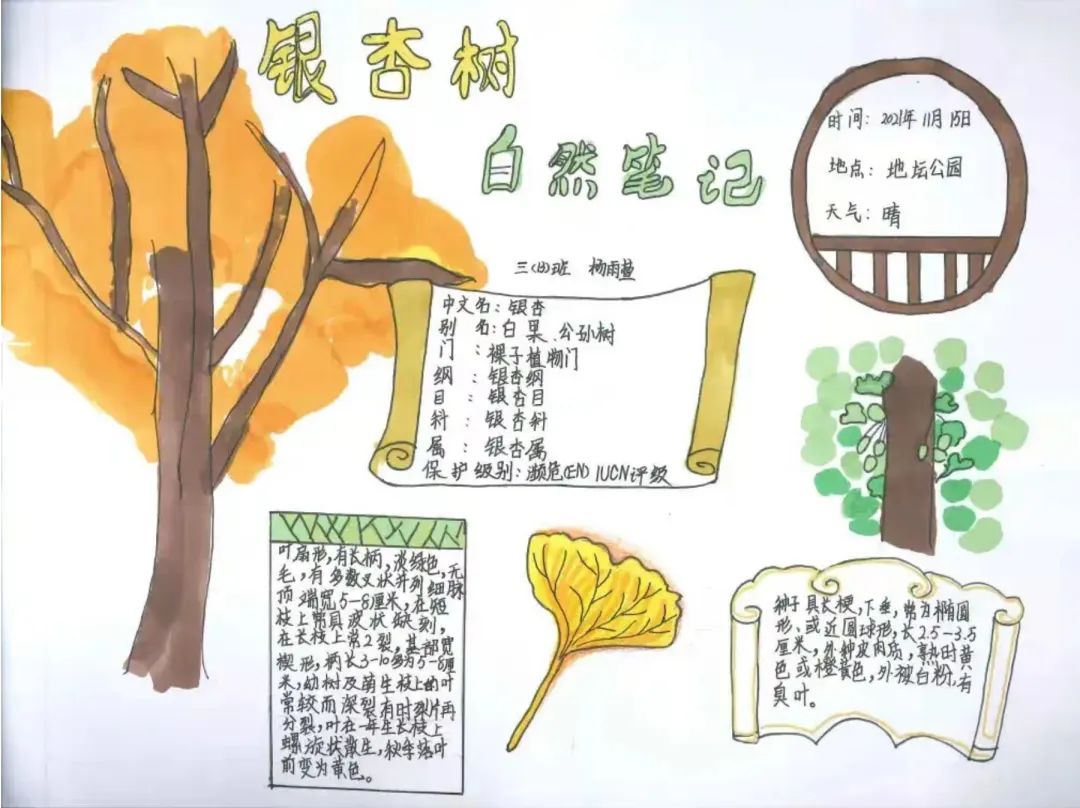 银杏树
自然笔记
时间：2021年11月15日
地点：地坛公园
天气：晴
三(8)班 杨雨萱
中文名：银杏
别 名：白果、公孙树
门 ：裸子植物门
纲 ：银杏纲
目 ：银杏目
科 ：银杏科
属 ：银杏属
保护级别：濒危(EN) IUCN评级
叶扇形，有长柄，淡绿色，无
毛，有多数叉状并列细脉
顶端宽5-8厘米，在短
枝上常具波状缺刻，
在长枝上常2裂，基部宽
楔形，柄长3-10多为5-8厘
米，幼树及萌生枝上的叶
常较而深裂有时裂片再
分裂，叶在一年生长枝上
螺旋状散生，秋季落叶
前变为黄色。
种子具长梗，下垂，常为椭圆
形、或近圆球形，长2.5-3.5
厘米，外种皮肉质，熟时黄
色或橙黄色，外被白粉，有
臭叶。